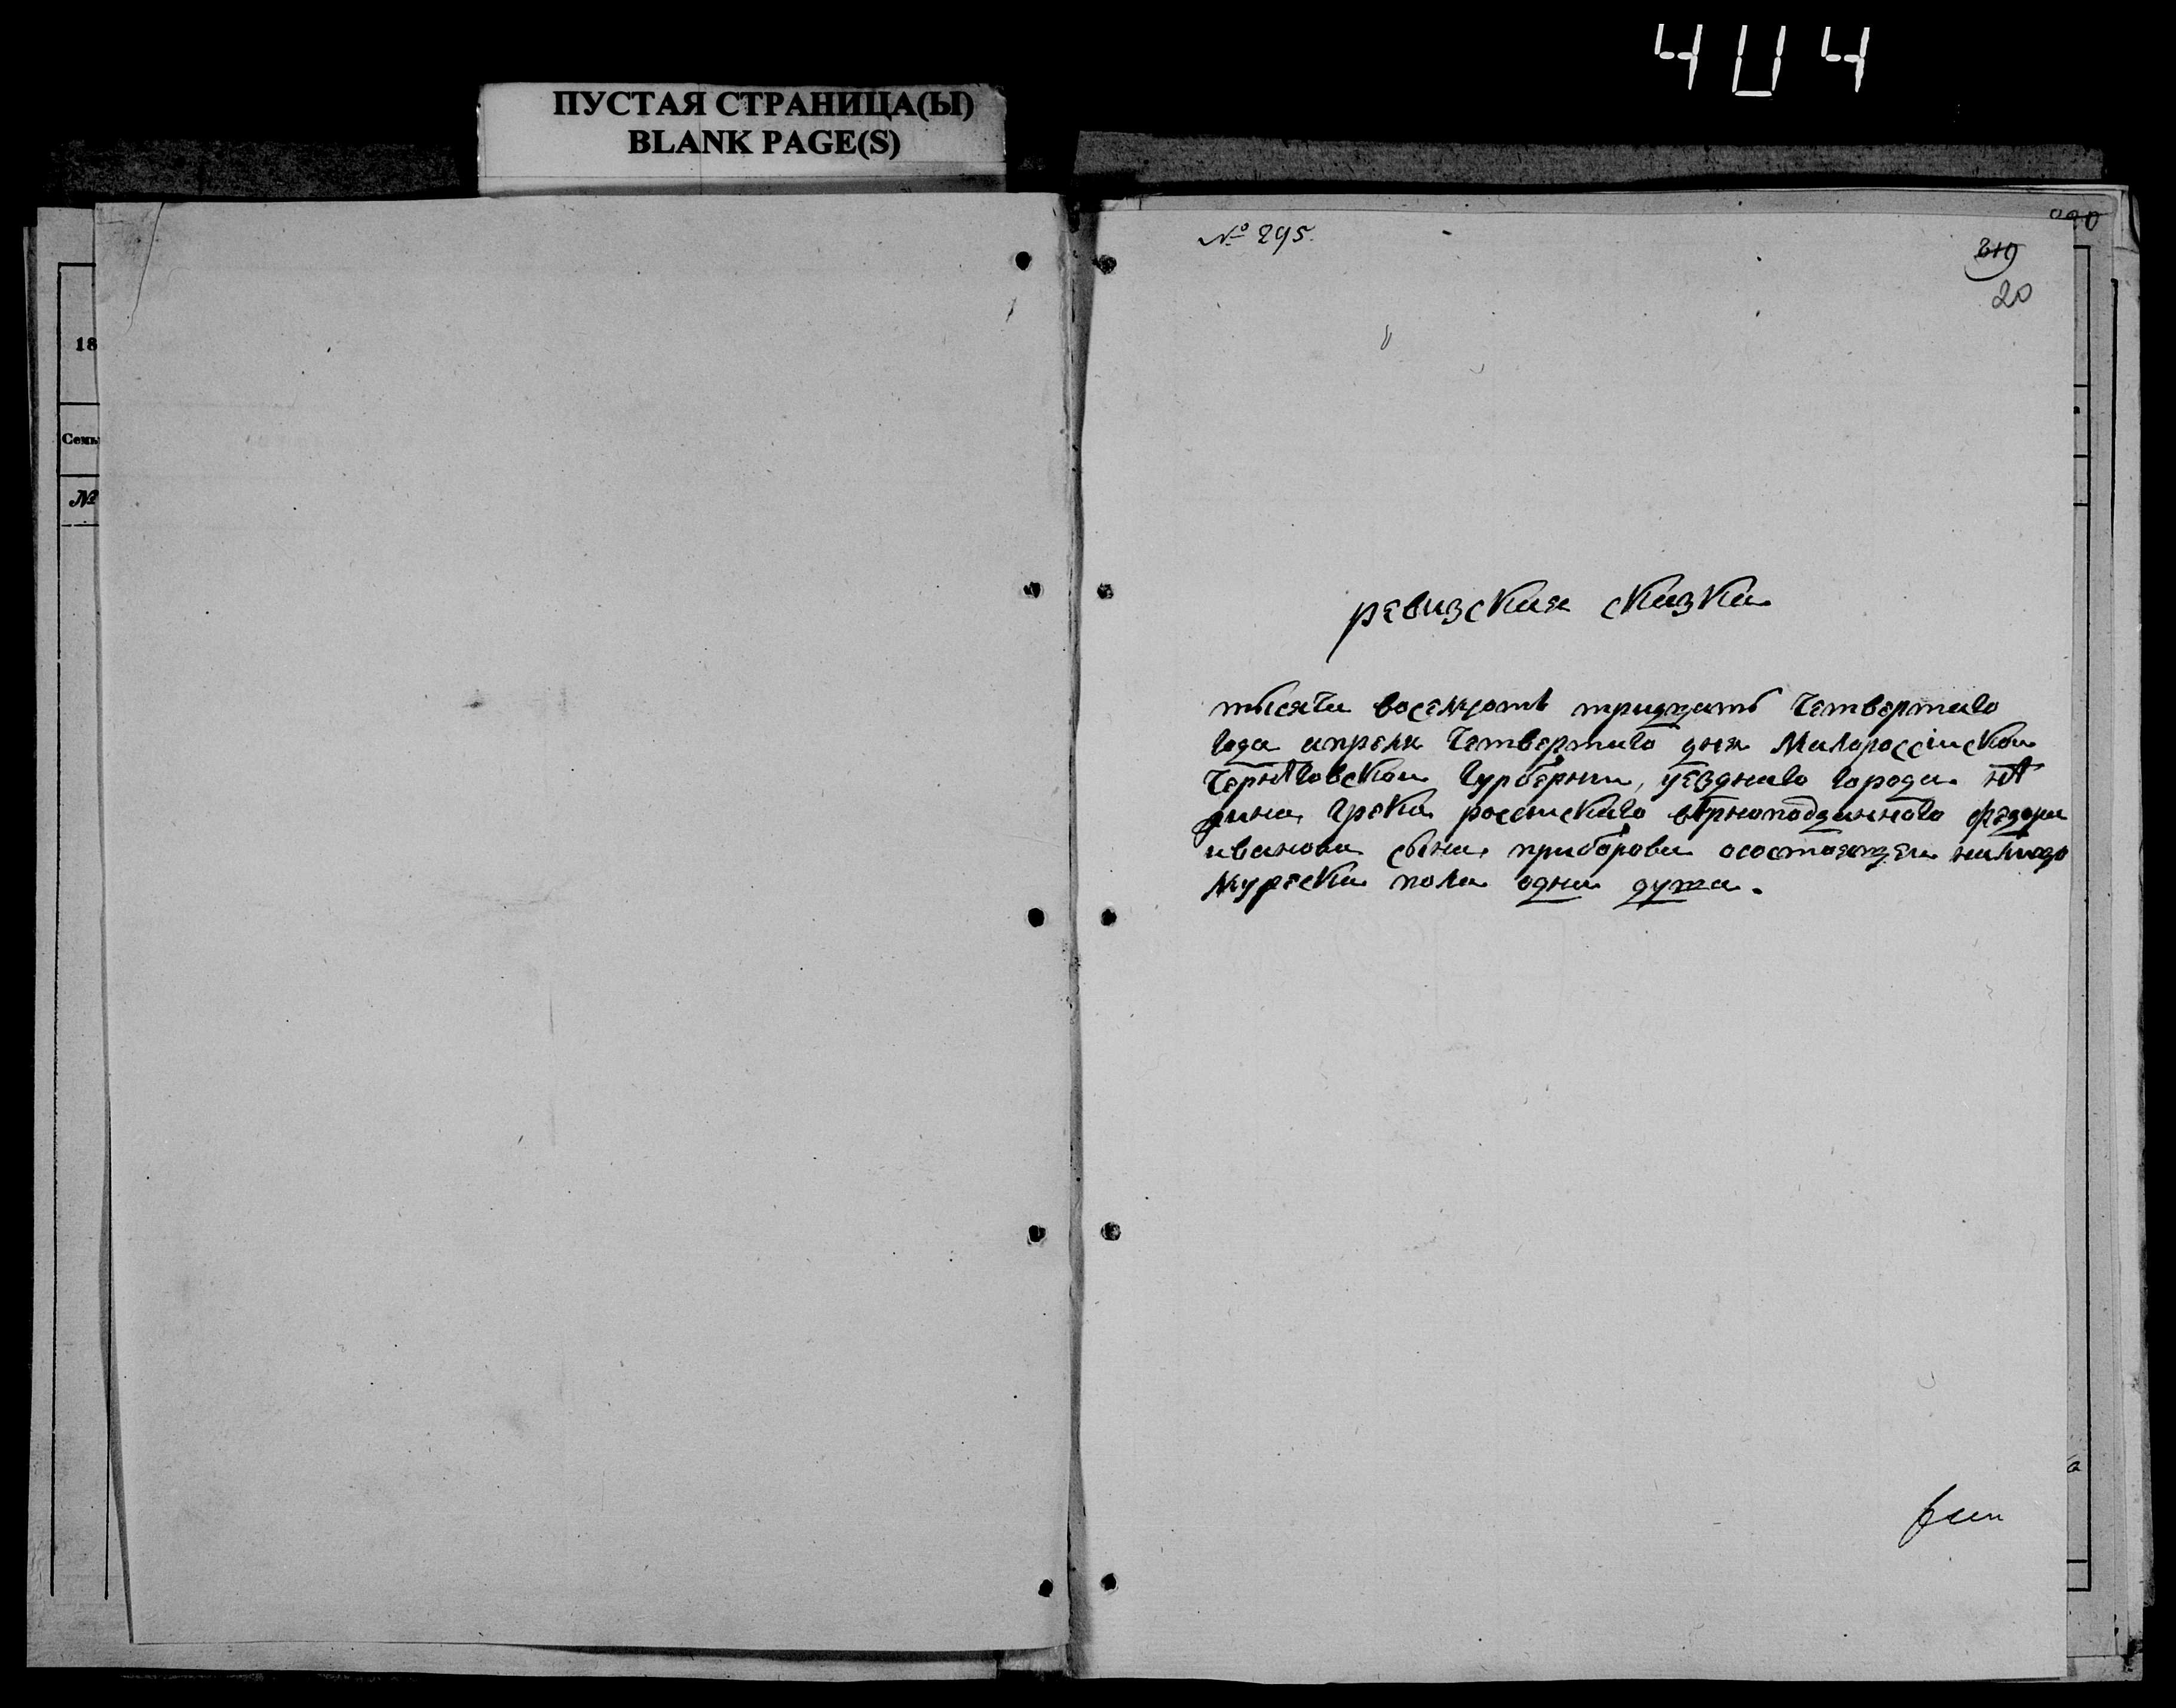 404
ПУСТАЯ СТРАНИЦА(Ы)
BLANK PAGE(S)
18
Семь
№
№ 295.
319
20
ревизская сказка
тысяча восемсотъ тридцать четвертаго
года апреля четвертаго дня Малороссійской
Чернѣговской Гурбернии, уезднаго города нѣ
жина Грека россискаго вѣрноподданного федора
иванова сына, приборова осостоящеи налицо
мужеска пола одна душа.